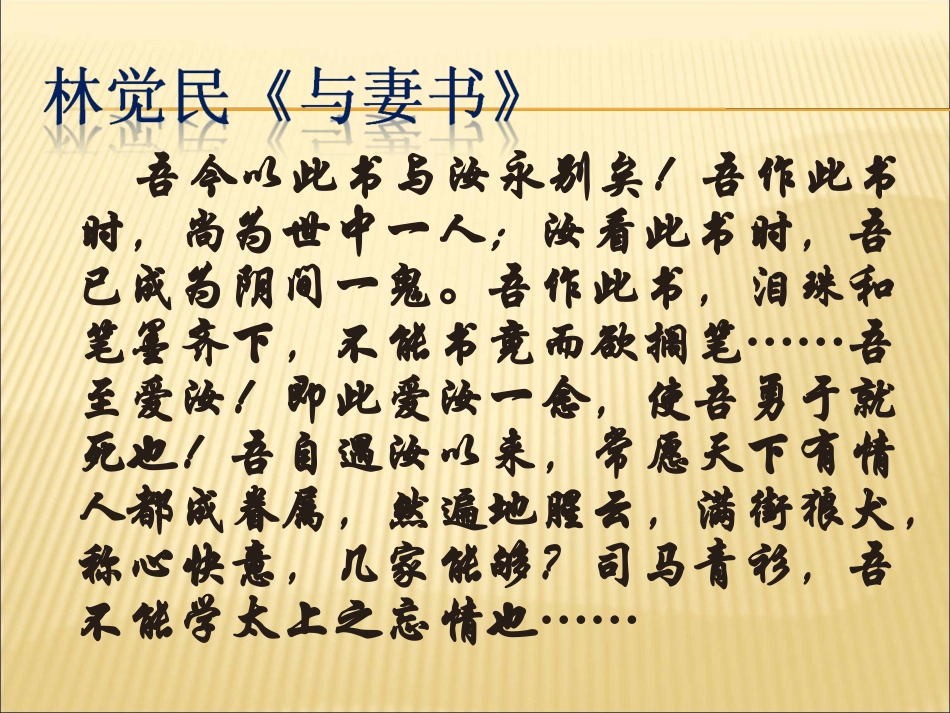 林觉民《与妻书》
吾今以此书与汝永别矣！吾作此书
时，尚为世中一人；汝看此书时，吾
已成为阴间一鬼。吾作此书，泪珠和
笔墨齐下，不能书竟而欲搁笔……吾
至爱汝！即此爱汝一念，使吾勇于就
死也！吾自遇汝以来，常愿天下有情
人都成眷属，然遍地腥云，满街狼犬，
称心快意，几家能够？司马青衫，吾
不能学太上之忘情也……